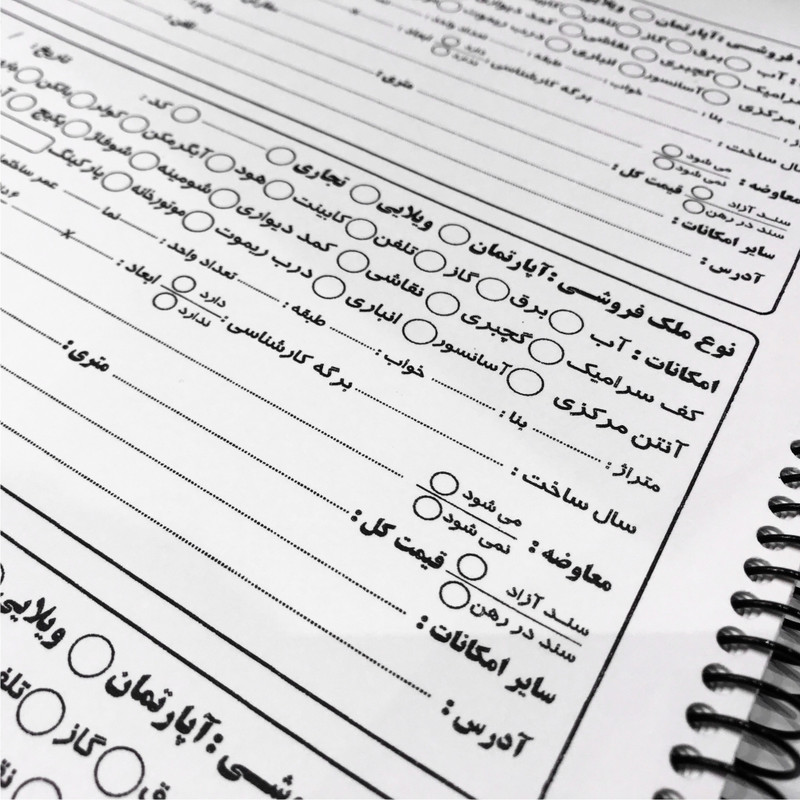 فروشی : آپارتمان ویلایی
آب برق گاز تلفن کابینت
سرامیک گچبری نقاشی کمد دیواری
مرکزی آسانسور انباری درب ریموت
بنا : خواب : طبقه : تعداد واحد :
سال ساخت : برگه کارشناسی : دارد ندارد ابعاد : x
معاوضه : می شود نمی شود متری : تلفن :
سند آزاد سند در رهن قیمت کل :
سایر امکانات :
آدرس :
نوع ملک فروشی : آپارتمان ویلایی تجاری کد : تاریخ : /
امکانات : آب برق گاز تلفن کابینت هود آبگرمکن کولر بالکن
کف سرامیک گچبری نقاشی کمد دیواری شومینه شوفاژ پکیج
آنتن مرکزی آسانسور انباری درب ریموت موتورخانه پارکینگ
متراژ : بنا : خواب : طبقه : تعداد واحد : نما عمر ساختمان
سال ساخت : برگه کارشناسی : دارد ندارد ابعاد : x
معاوضه : می شود نمی شود متری :
سند آزاد سند در رهن قیمت کل :
سایر امکانات :
آدرس :
آپارتمان ویلایی
گاز